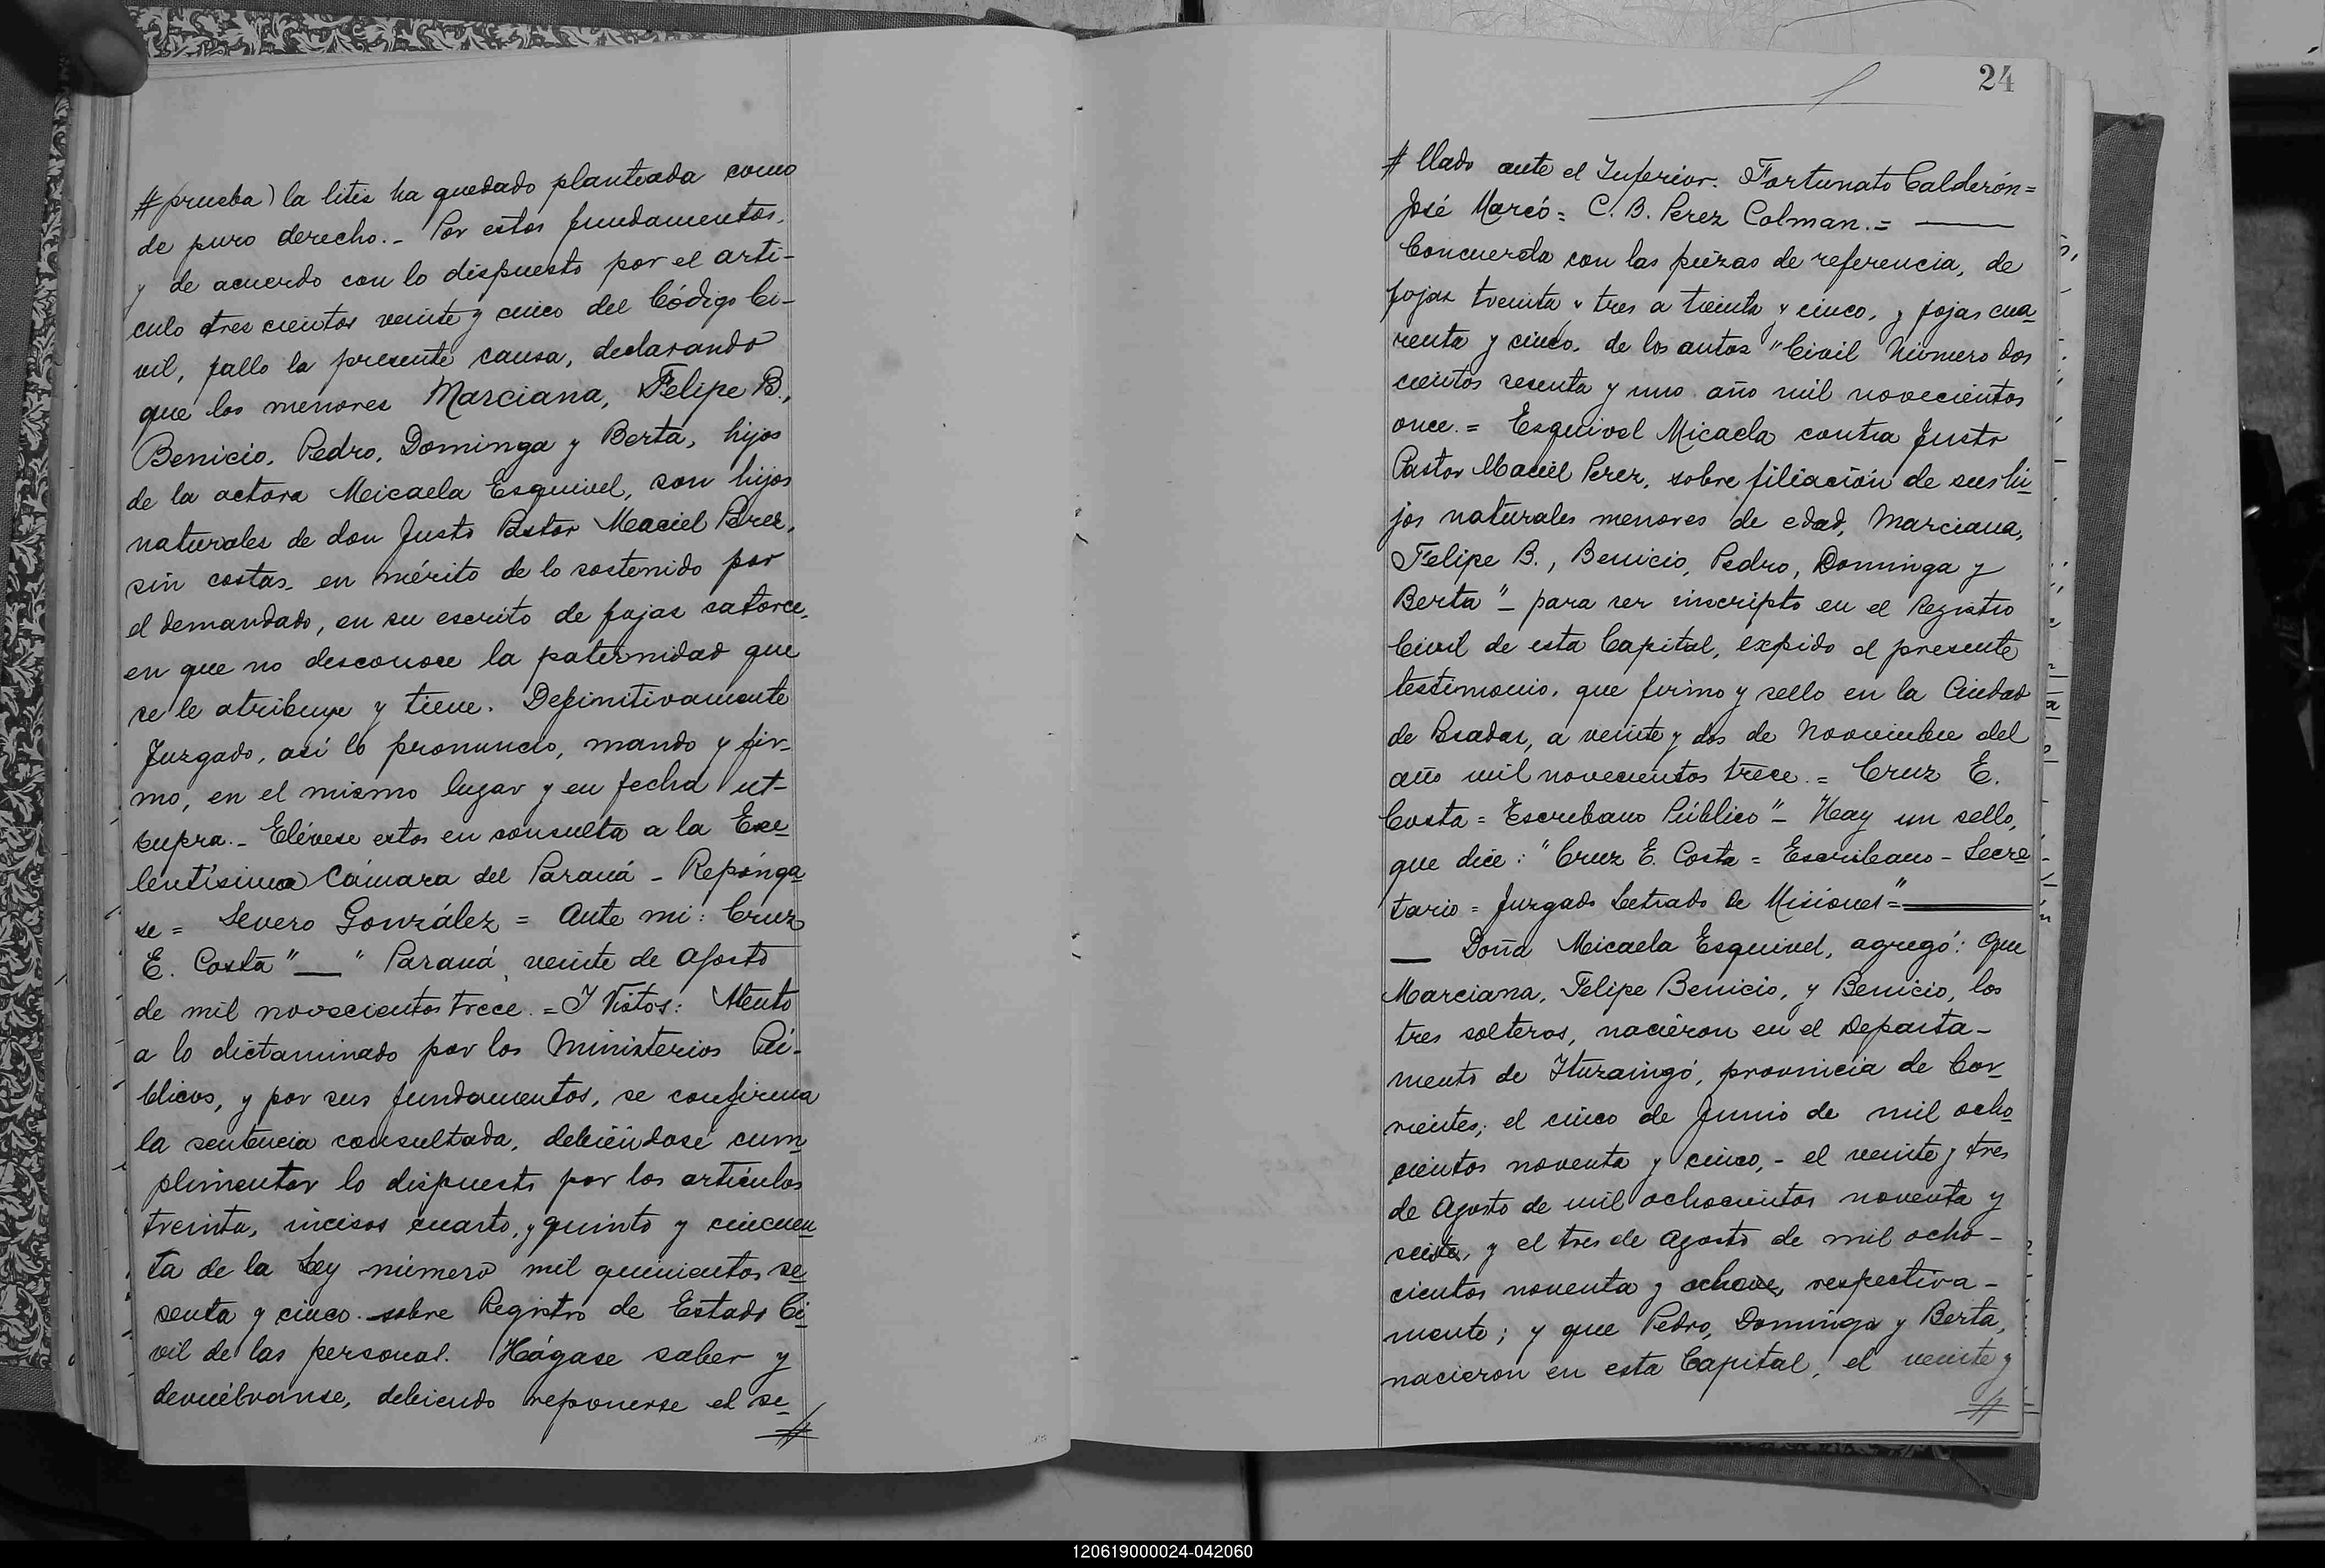 # prueba) la litis ha quedado planteada como
de puro derecho.- Por estos fundamentos,
y de acuerdo con lo dispuesto por el arti-
culo tres cientos veinte y cinco del Código Ci-
vil, fallo la presente causa, declarando
que los menores Marciana, Felipe B.,
Benicio, Pedro, Dominga y Berta, hijos
de la actora Micaela Esquivel, son hijos
naturales de don Justo Pastor Maciel Perez,
sin costas, en mérito de lo sostenido por
el demandado, en su escrito de fojas catorce,
en que no desconoce la paternidad que
se le atribuye y tiene. Definitivamente
Juzgado, así lo pronuncio, mando y fir-
mo, en el mismo lugar y en fecha ut-
supra.- Elévese estos en consulta a la Exe-
lentísima Cámara del Paraná - Repónga
se = Severo González = Ante mi: Cruz
E. Costa" — " Paraná, veinte de Agosto
de mil novecientos trece. = Y Vistos: Atento
a lo dictaminado por los Ministerios Pú-
blicos, y por sus fundamentos, se confirma
la sentencia consultada, debiéndose cum-
plimentar lo dispuesto por los artículos
treinta, incisos cuarto, y quinto y cincuen
ta de la Ley número mil quinientos se
senta y cinco sobre Registro de Estado Ci-
vil de las personas. Hágase saber y
devuélvanse, debiendo reponerse el se-
#
24
# llado ante el Inferior. Fortunato Calderón=
José Marcó= C. B. Perez Colman.= —
Concuerda con las piezas de referencia, de
fojas treinta y tres a treinta y cinco, y fojas cua-
renta y cinco, de los autos "Civil Número dos
cientos sesenta y uno año mil novecientos
once. = Esquivel Micaela contra Justo
Pastor Maciel Perez, sobre filiación de sus hi-
jos naturales menores de edad, Marciana,
Felipe B., Benicio, Pedro, Dominga y
Berta"- para ser inscripto en el Registro
Civil de esta Capital, expido el presente
testimonio, que firmo y sello en la Ciudad
de Posadas, a veinte y dos de Noviembre del
año mil novecientos trece. = Cruz E.
Costa = Escribano Público"- Hay un sello,
que dice: "Cruz E. Costa = Escribano - Secre-
tario = Juzgado Letrado de Misiones"=
— Doña Micaela Esquivel, agregó: Que
Marciana, Felipe Benicio, y Benicio, los
tres solteros, nacieron en el Departa-
mento de Ituzaingó, provincia de Cor-
rientes; el cinco de Junio de mil ocho
cientos noventa y cinco, - el veinte y tres
de Agosto de mil ochocientos noventa y
y el tres de Agosto de mil ocho-
cientos noventa y respectiva-
mente; y que Pedro, Dominga y Berta,
nacieron en esta Capital, el veinte y
#
120619000024-042060